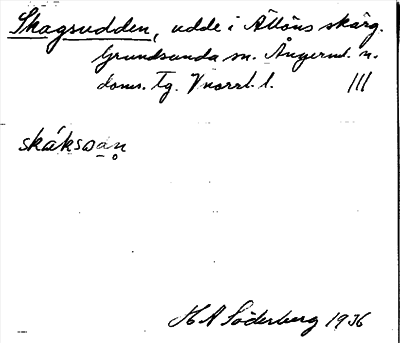 Skagsudden, udde i Ällöns skärg.
Grundsunda sn. Ångerml. n.
doms. Tg. Vnorrl. l. III
skáksꙍan
H A Söderberg 1936